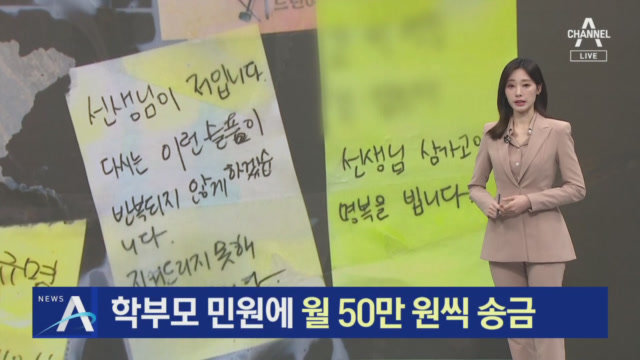 드린이
CHANNEL
LIVE
선생님이 저입니다.
다시는 이런 슬픔이
반복되지 않게 하겠습
니다.
지켜드리지 못해
선생님 삼가고인
명복을 빕니다
규명
NEWS A
학부모 민원에 월 50만 원씩 송금